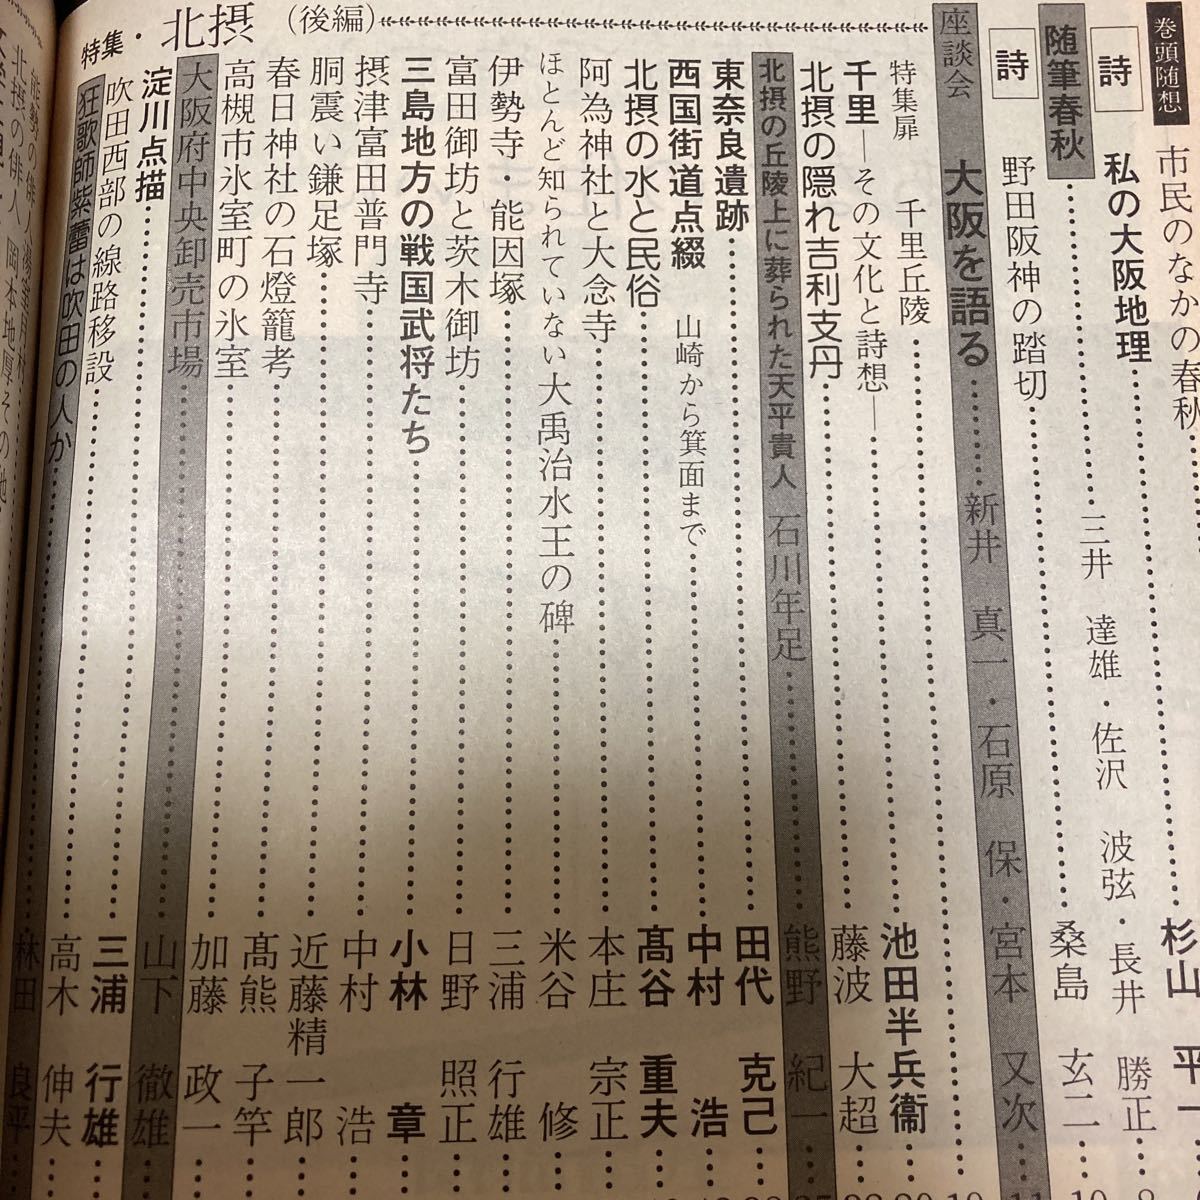 巻頭随想
市民のなかの春秋……杉山 平一
詩
私の大阪地理……三井 達雄・佐沢 波弦・長井 勝正
随筆春秋……桑島 玄二
詩
野田阪神の踏切
座談会 大阪を語る……新井 真一・石原 保・宮本 又次
特集・北摂(後編)
特集扉 千里丘陵……池田半兵衞
千里―その文化と詩想―……藤波 大超
北摂の隠れ吉利支丹
北摂の丘陵上に葬られた天平貴人 石川年足……熊野 紀一
東奈良遺跡……田代 克己
西国街道点綴 山崎から箕面まで……中村 浩
北摂の水と民俗……髙谷 重夫
阿為神社と大念寺……本庄 宗正
ほとんど知られていない大禹治水王の碑……米谷 修
伊勢寺・能因塚……三浦 行雄
富田御坊と茨木御坊……日野 照正
三島地方の戦国武将たち……小林 章
摂津富田普門寺……中村 浩
胴震い鎌足塚……近藤精一郎
春日神社の石燈籠考……髙熊 子竿
高槻市氷室町の氷室……加藤 政一
大阪府中央卸売市場……山下 徹雄
淀川点描……三浦 行雄
吹田西部の線路移設……高木 伸夫
狂歌師紫蕾は吹田の人か……林田 良平